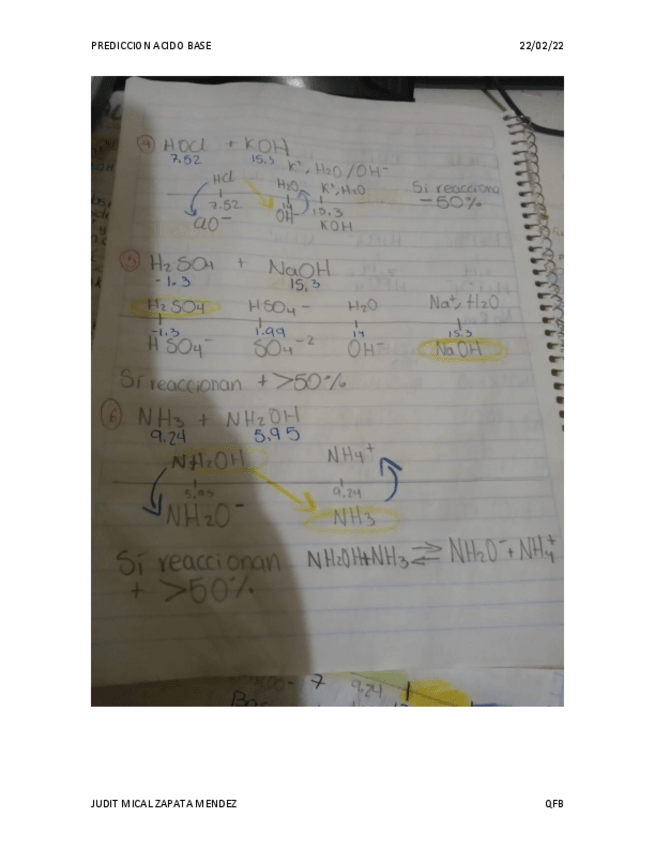 PREDICCION ACIDO BASE 22/02/22
4 HOCl + KOH
7.52 15.3 K⁺, H2O/OH⁻
HCl H2O K⁺, H2O Si reacciona
7.52 14 15.3 -50%
ClO⁻ OH⁻ KOH
5 H2SO4 + NaOH
-1.3 15,3
H2SO4 HSO4⁻ H2O Na⁺, H2O
-1.3 1.99 14 15.3
HSO4⁻ SO4⁻² OH⁻ NaOH
Sí reaccionan + >50%
6 NH3 + NH2OH
9.24 5,95
NH2OH NH4⁺
5,95 9,24
NH2O⁻ NH3
Sí reaccionan NH2OH+NH3 ⇌ NH2O⁻+NH4⁺
+ >50%
7 9.24
JUDIT MICAL ZAPATA MENDEZ QFB